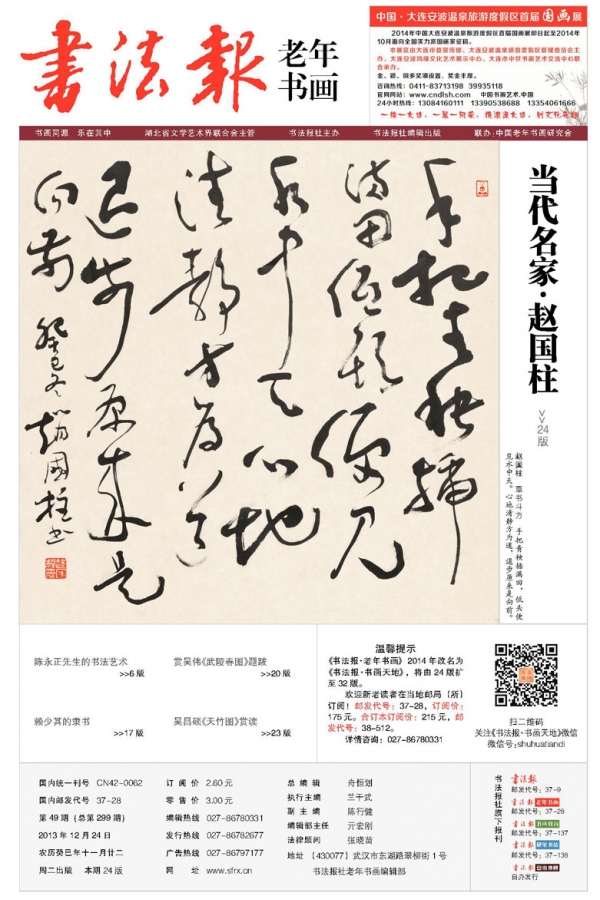 书法报
老年
书画
中国·大连安波温泉旅游度假区首届国画展
2014年中国大连安波温泉旅游度假区首届国画展即日起至2014年
10月面向全国实力派国画家征稿。
本展览由大连市委宣传部、大连安波温泉旅游度假区管理委员会主
办，大连安波鸿缘文化艺术展示中心、大连市中世书画艺术交流中心联
合承办。
金、银、铜多奖项设置，奖金丰厚。
咨询热线：0411-83713198 39935118
官网网站：www.cndlsh.com 中国书画艺术.中国
24小时热线：13084160111 13390538688 13354061666
书画同源 乐在其中
湖北省文学艺术界联合会主管
书法报社主办
书法报社编辑出版
联办:中国老年书画研究会
当代名家·赵国柱
>>24版
赵国柱 草书斗方 手把青秧插满田，低头便
见水中天。心地清静方为道，退步原来是向前。
手把青秧插
满田低头便见
水中天心地
清静方为道
退步原来是
向前 癸巳冬 赵国柱书
陈永正先生的书法艺术
>>6版
赏吴伟《武陵春图》题跋
>>20版
赖少其的隶书
>>17版
吴昌硕《天竹图》赏读
>>23版
温馨提示
《书法报·老年书画》2014年改名为
《书法报·书画天地》，将由24版扩
至32版。
欢迎新老读者在当地邮局（所）
订阅！邮发代号：37-28，订阅价：
175元。合订本订阅价：215元，邮
发代号：38-512。
详情咨询：027-86780331
扫二维码
关注《书法报·书画天地》微信
微信号:shuhuatiandi
国内统一刊号 CN42-0062
国内邮发代号 37-28
第49期（总第299期）
2013年12月24日
农历癸巳年十一月廿二
周二出版 本期24版
订阅价 2.60元
零售价 3.00元
编辑热线 027-86780331
发行热线 027-86782677
广告热线 027-86797177
网址 www.sfrx.cn
总编辑 舟恒划
执行主编 兰干武
副主编 陈行健
编辑部主任 亓宏刚
法律顾问 张晓苗
地址 （430077）武汉市东湖路翠柳街1号
书法报社老年书画编辑部
书法报社旗下报刊
书法报
邮发代号：37-9
书法报 老年书画
邮发代号：37-28
书法报
邮发代号：37-137
书法报
邮发代号：37-138
书法报
自办发行